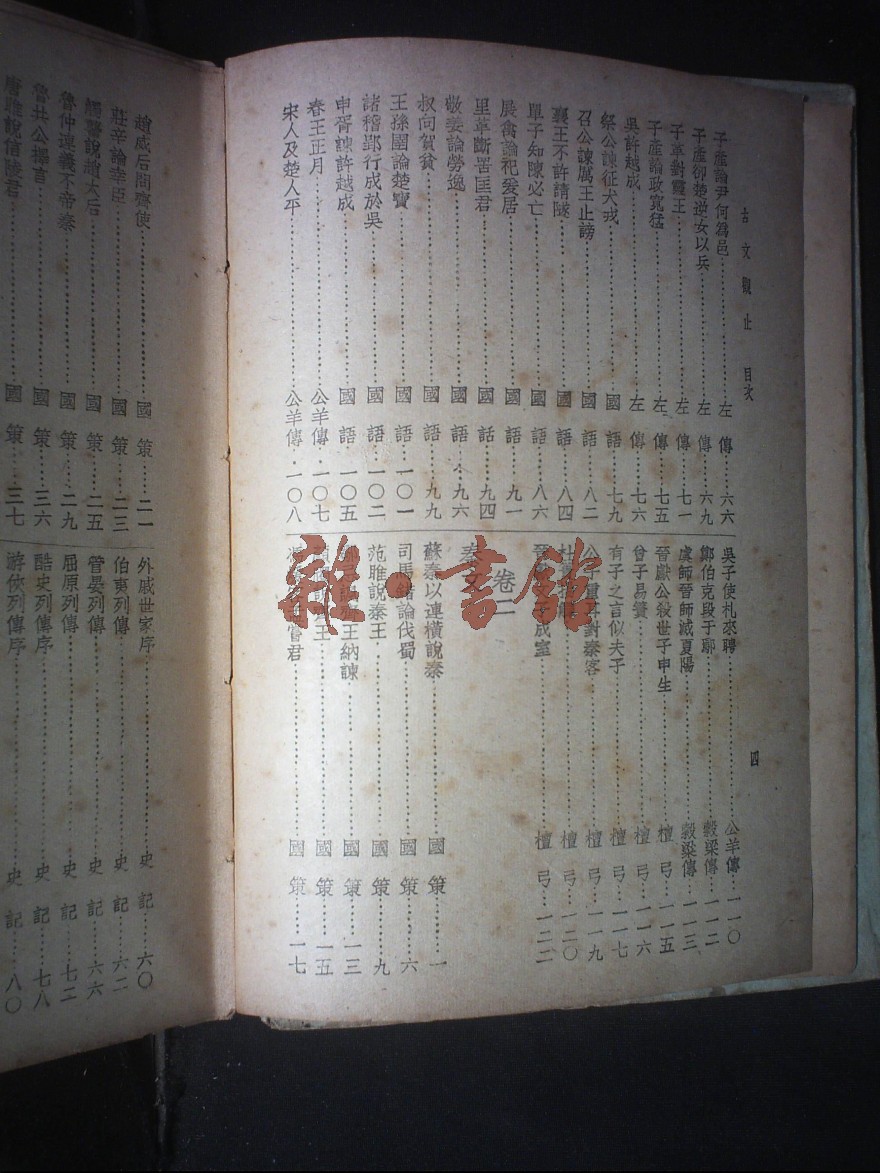 古文觀止 目次 四
子產論尹何爲邑……左傳……六六
子產卻楚逆女以兵……左傳……六九
子革對靈王……左傳……七一
子產論政寬猛……左傳……七五
吳許越成……左傳……七六
祭公諫征犬戎……國語……七九
召公諫厲王止謗……國語……八二
襄王不許請隧……國語……八四
單子知陳必亡……國語……八六
展禽論祀爰居……國語……九一
里革斷罟匡君……國語……九四
敬姜論勞逸……國語……九六
叔向賀貧……國語……九九
王孫圉論楚寶……國語……一〇一
諸稽郢行成於吳……國語……一〇二
申胥諫許越成……國語……一〇五
春王正月……公羊傳……一〇七
宋人及楚人平……公羊傳……一〇八
吳子使札來聘……公羊傳……一一〇
鄭伯克段于鄢……穀梁傳……一一二
虞師晉師滅夏陽……穀梁傳……一一三
晉獻公殺世子申生……檀弓……一一五
曾子易簀……檀弓……一一六
有子之言似夫子……檀弓……一一七
公子重耳對秦客……檀弓……一一九
杜……檀弓……一二〇
晉獻文子成室……檀弓……一二二
卷二
秦文
蘇秦以連橫說秦……國策……一
司馬錯論伐蜀……國策……六
范雎說秦王……國策……九
王納諫……國策……一三
王……國策……一五
君……國策……一七
趙威后問齊使……國策……二一
莊辛論幸臣……國策……二三
觸讋說趙太后……國策……二五
魯仲連義不帝秦……國策……二九
魯共公擇言……國策……三六
唐雎說信陵君……國策……三七
外戚世家序……史記……六〇
伯夷列傳……史記……六二
管晏列傳……史記……六六
屈原列傳……史記……七二
酷吏列傳序……史記……七八
游俠列傳序……史記……八〇
雜·書館